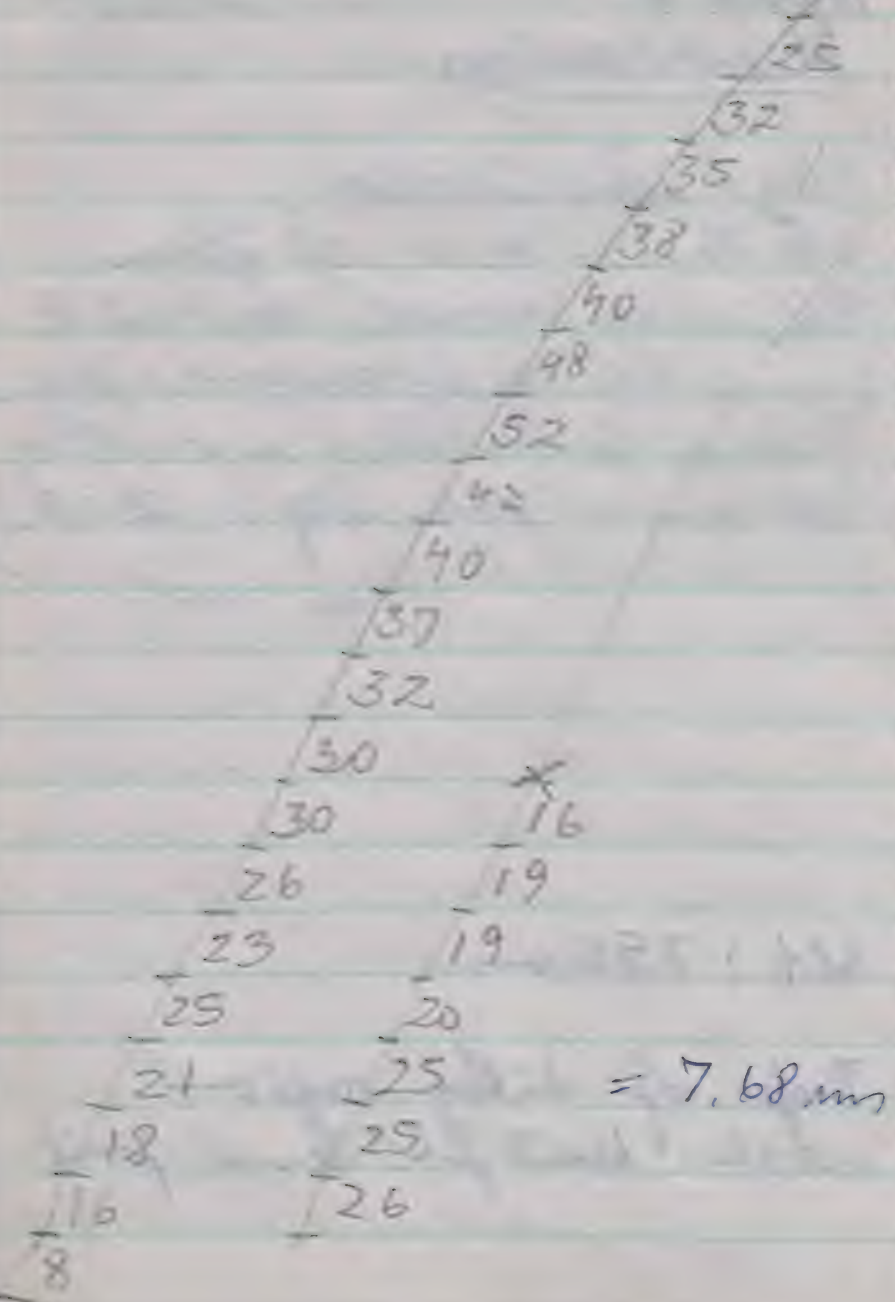 25
32
35
38
40
48
52
42
40
37
32
30
30
26
23
25
21
18
16
8
16
19
19
20
25
25
26
= 7.68 mm